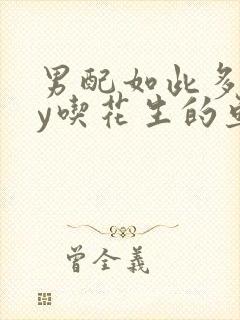 男配如此多
y喫花生的
曾全義